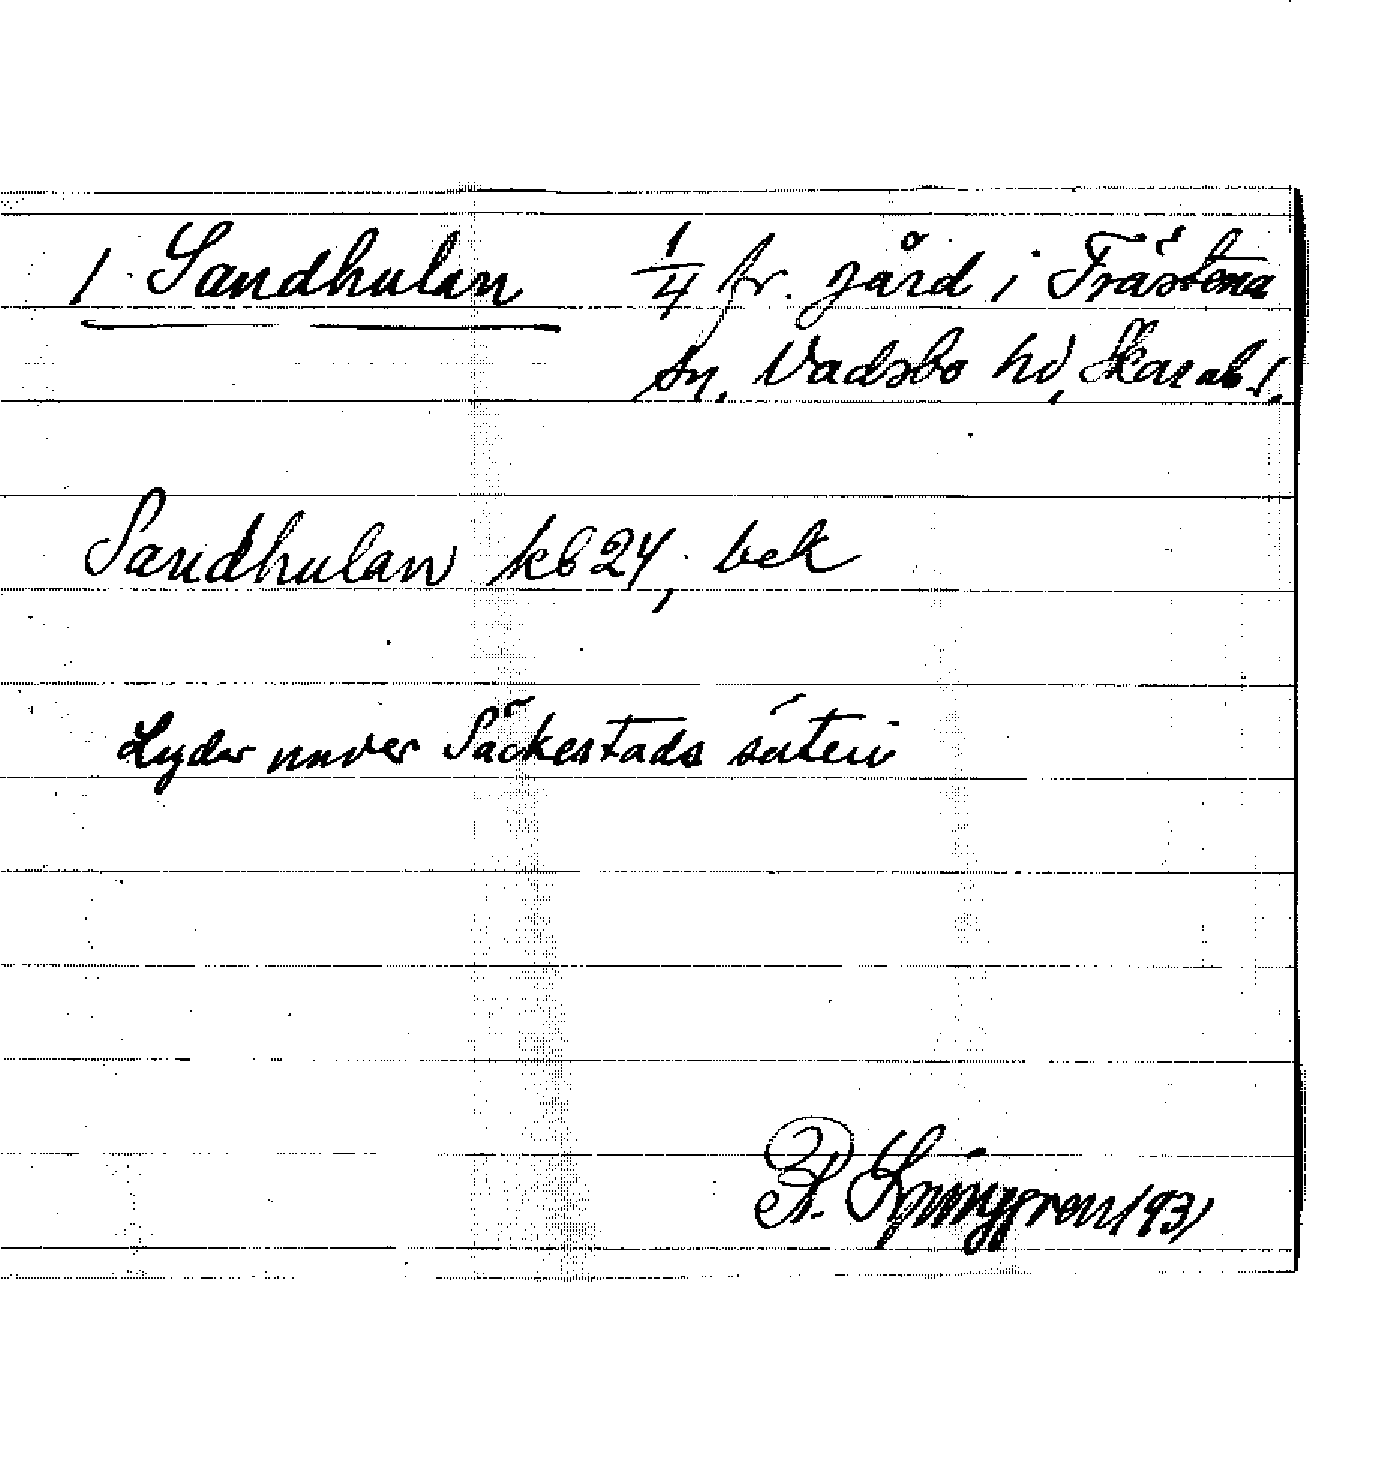 1. Sandhulan 1/4 fr. gård i Trästena
sn. Vadsbo hd, Skarab l.
Sandhulan kb 24; bek
Lyder under Säckestads säteri
P. Ljunggren 1931